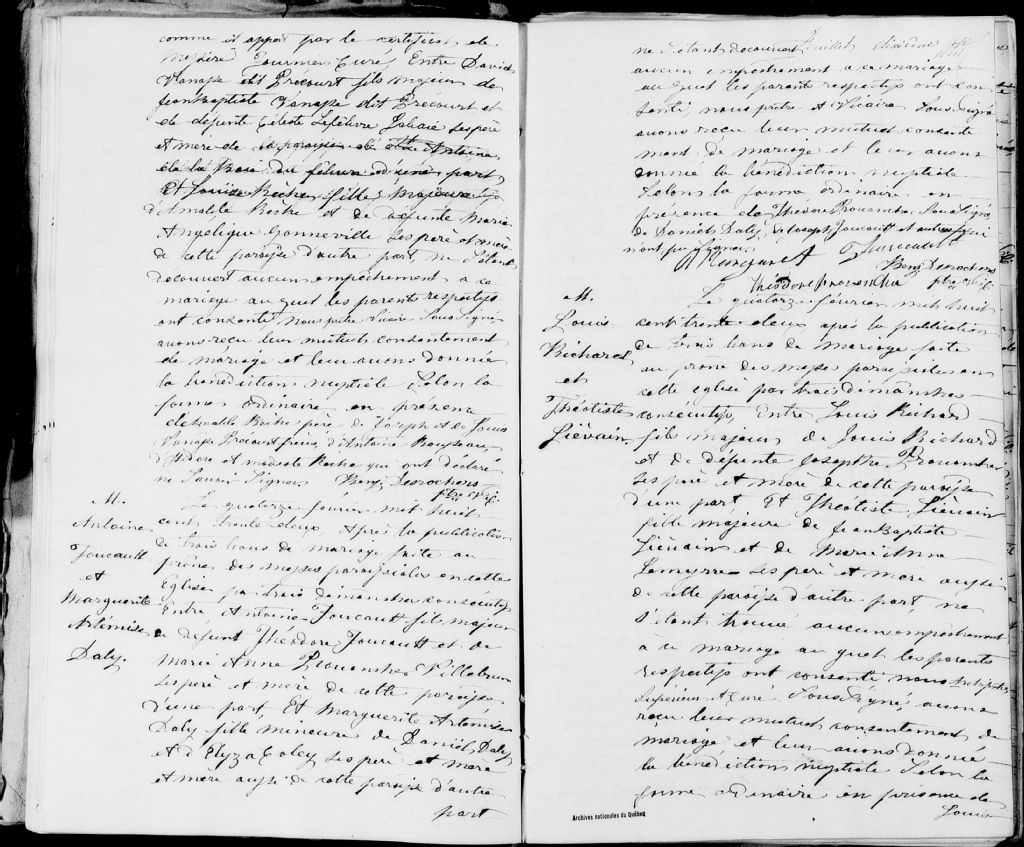 comme il appert par le certificat de
Messire Fournier Curé, Entre David
Vanasse dit Précourt fils majeur de
Jean Baptiste Vanasse dit Précourt et
de défunte Céleste Lefebvre ses père
et mère de la paroisse de St Antoine
de la Baie du febvre d'une part
Et Louise Roche fille Majeure
d'Amable Roche et de défunte Marie
Angélique Gonneville ses père et mère
de cette paroisse d'autre part ne s'étant
decouvert aucun empêchement a ce
mariage au quel les parents respectifs
ont consenti nous prêtre Vicaire Sous Signé
avons reçu leur mutuel consentement
de mariage et leur avons donnée
la bénédiction nuptiale Selon la
forme ordinaire en présence
d'Amable Roche père de Joseph et de Louis
Vanasse Précourt freres, d'Antoine Rousseau,
d'Isidore et modeste Roche qui ont déclaré
ne Savoir Signer. Benj. Desrochers
ptre Vic.
M.
Antoine
Foucault
et
Marguerite
Artémise
Daly.
Le quatorze fevrier mil huit
cent trente deux Après la publication
de trois bans de mariage faite au
prône des messes paroissiales en cette
Eglise par trois dimanches consécutifs
Entre Antoine Foucault fils majeur
de défunt Théodore Foucault et de
Marie Anne Prouancher Villebrun
ses père et mère de cette paroisse
d'une part, Et Marguerite Artémise
Daly fille mineure de Daniel Daly
et d'Elyza Coley ses père et mère
et mere aussi de cette paroisse d'autre
part
ne s'étant decouvert
aucun empêchement a ce mariage
au quel les parents respectifs ont con
senti, nous prêtre et Vicaire Sous Signé
avons recu leur mutuel consente
ment de mariage et leur avons
donnée la bénédiction nuptiale
Selon la forme ordinaire en
présence de Théodore Prouancher, Sous Signé,
de Daniel Daly, de Joseph Foucault et autres qui
n'ont pu Signer
Foucault
Benj. Desrochers
Théodore prouancher ptre Vic.
M.
Louis
Richard
et
Théotiste
Liévain
Le quatorze fevrier mil huit
cent trente deux après la publication
de trois bans de mariage faite
au prone des messes paroissiales en
cette église par trois dimanches
consécutifs, Entre Louis Richard
fils majeur de Louis Richard
et de défunte Josephte Prouancher
ses père et mère de cette paroisse
d'une part Et Théotiste Liévain
fille majeure de Jean Baptiste
Liévain et de Marie Anne
Lemyrre ses père et mère aussi
de cette paroisse d'autre part ne
s'étant trouvé aucun empêchement
à ce mariage au quel les parents
respectifs ont consenti nous
Supérieur et Curé Sous Signé avons
reçu leur mutuel consentement de
mariage et leur avons donnée
la bénédiction nuptiale Selon la
forme ordinaire en présence de
Louis
Archives nationales du Québec